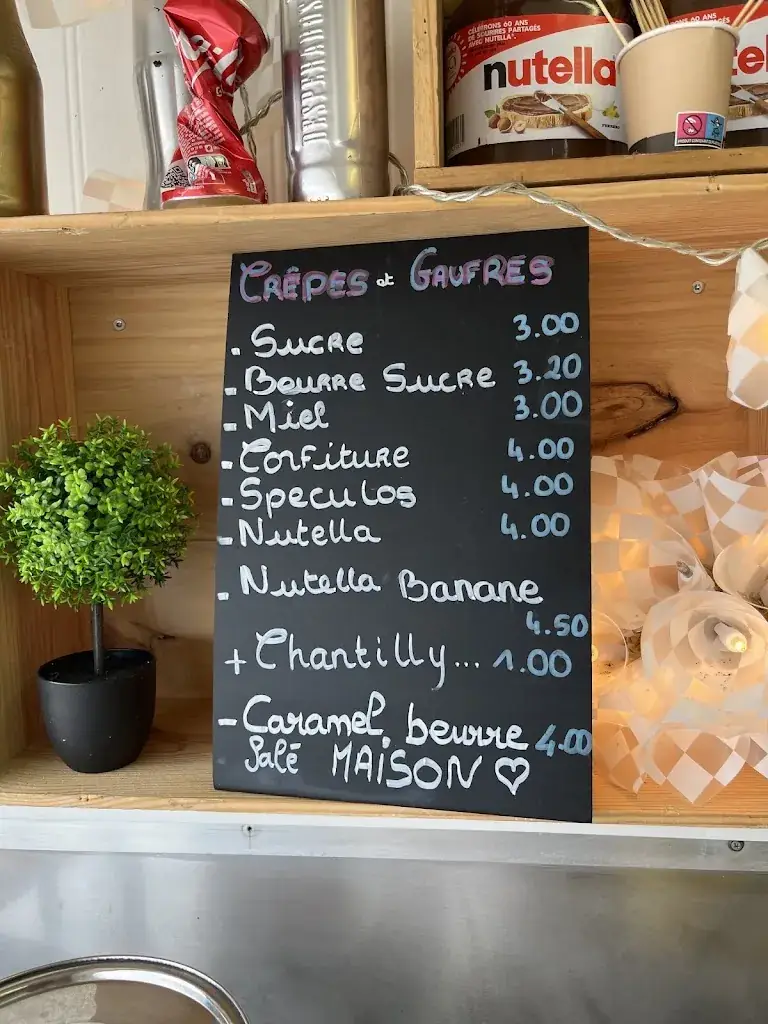 CÉLÉBRONS 60 ANS
DE SOURIRES PARTAGÉS
AVEC NUTELLA
nutella
CRÊPES et GAUFRES
. Sucre 3.00
. Beurre Sucre 3.20
- Miel 3.00
. Confiture 4.00
. Speculos 4.00
- Nutella 4.00
. Nutella Banane
4.50
+ Chantilly... 1.00
- Caramel beurre 4.00
Salé MAISON ♡